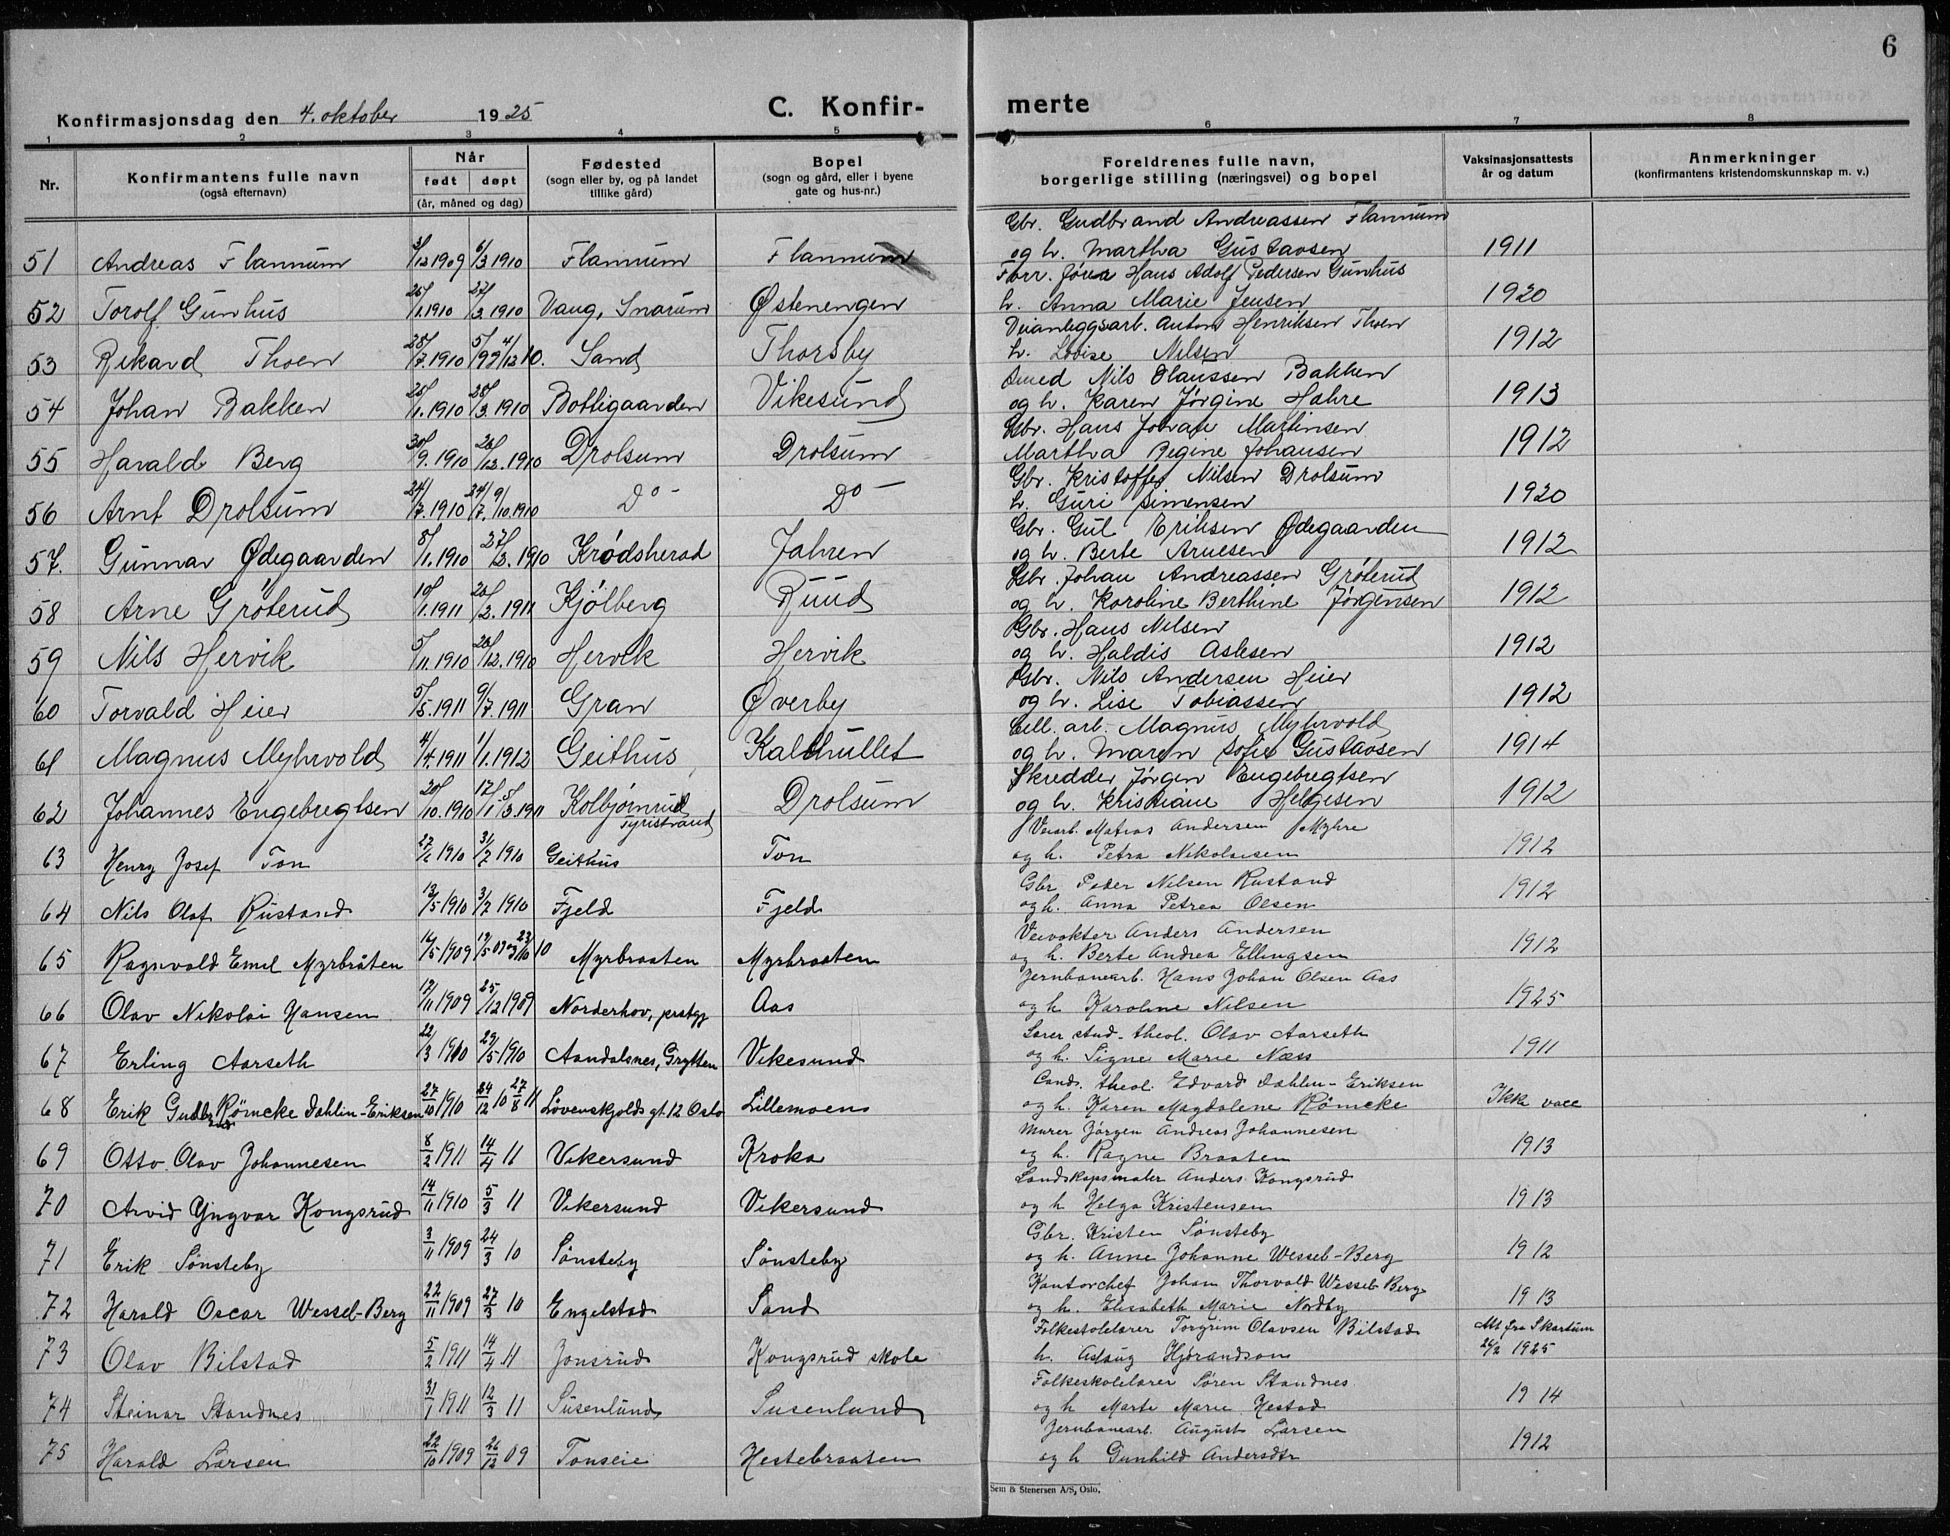 6
Konfirmasjonsdag den 4. oktober 1925
C. Konfir- merte
1 2 3 4 5 6 7 8
Nr.
Konfirmantens fulle navn
(også efternavn)
Når
født døpt
(år, måned og dag)
Fødested
(sogn eller by, og på landet
tillike gård)
Bopel
(sogn og gård, eller i byene
gate og hus-nr.)
Foreldrenes fulle navn,
borgerlige stilling (næringsvei) og bopel
Vaksinasjonsattests
år og datum
Anmerkninger
(konfirmantens kristendomskunnskap m. v.)
Gbr. Gudbrand Andreassen Flannum
51 Andreas Flannum 3/12 1909 6/3 1910 Flannum Flannum og h. Martha Gustavsen 1911
Forr. Hans Adolf Pedersen Gunhus
52 Torolf Gunhus 25/1.1910 27/3.1910 Vang, Snarum Østenengen h. Anna Marie Jensen 1920
Veianleggsarb. Anton Henriksen Thoen
53 Rikard Thoen 28/7.1910 5/9 4/12 10. Sand Thorsby h. Lovise Nilsen 1912
Smed Nils Olaussen Bakken
54 Johan Bakken 25/1.1910 28/3.1910 Bottigaarden Vikesund og h. Karen Jørgine Hahre 1913
Gbr. Hans Johan Martinsen
55 Harald Berg 30/9.1910 26/12.1910 Drolsum Drolsum Martha Regine Johansen 1912
Gbr. Kristoffer Nilsen Drolsum
56 Arnt Drolsum 24/7.1910 24/7. 9/10.1910 Do - Do - h. Guri Simensen 1920
Gbr. Gul Eriksen Ødegaarden
57. Gunnar Ødegaarden 8/1.1910 27/3.1910 Krødsherad Jahren og h. Berte Arnesen 1912
Gbr. Johan Andreassen Grøterud
58 Arne Grøterud 10/1.1911 26/2.1911 Kjølberg Ruud og h. Karoline Berthine Jørgensen 1912
Gbr. Hans Nilsen
59 Nils Hervik 5/11.1910 26/12.1910 Hervik Hervik og h. Haldis Aslesen 1912
Gbr. Nils Andersen Heier
60 Torvald Heier 5/5.1911 9/7.1911 Gran Øverby og h. Lise Tobiassen 1912
Cell. arb. Magnus Myhrvold
61 Magnus Myhrvold 4/4.1911 1/1.1912 Geithus Kalthullet og h. Maren Sofie Gustavsen 1914
Skredder Jørgen Engebregtsen
62 Johannes Engebregtsen 20/10.1910 17/1 5/3.1911 Kolbjørnrud Tyristrand Drolsum og h. Kristiane Helgesen 1912
Veiarb. Matias Andersen Myhre
63 Henry Josef Ton 1910 31/7 1910 Geithus Ton og h. Petra Nikolaisen 1912
Gbr Peder Nilsen Rustand
64 Nils Olaf Rustand 13/5 1910 3/7 1910 Fjeld Fjeld og h. Anna Petrea Olsen 1912
Veivokter Anders Andersen
65 Ragnvald Emil Myrbråten 16/5 1909 10 Myrbraaten Myrbraaten og h. Berte Andrea Ellingsen 1912
Jernbanearb. Hans Johan Olsen Aas
66 Olav Nikolai Hansen 17/11 1909 25/12 1909 Norderhov, prstgj Aas og h Karoline Nilsen 1925
Lærer stud. theol. Olav Aarseth
67 Erling Aarseth 22/3 1910 29/5 1910 Aandalsnes, Grytten Vikesund og h. Signe Marie Næss 1911
Cand. theol. Edvard Dahlin-Eriksen
68 Erik Gudbr Rømcke Dahlin-Eriksen 27/10 1910 24/12 10 27/8 11 Løvenskjolds gt. 12 Oslo Lillemoen og h. Karen Magdalene Rømcke Ikke vacc
Murer Jørgen Andreas Johannesen
69 Otto Olav Johannesen 8/2 1911 14/4 11 Vikersund Kroka og h. Ragne Braaten 1913
Landskapsmaler Anders Kongsrud
70 Arvid Yngvar Kongsrud 14/11 1910 5/3 11 Vikersund Vikersund og h Helga Kristensen 1913
Gbr. Kristen Sønsteby
71 Erik Sønsteby 3/11 1909 24/3 10 Sønsteby Sønsteby og h. Anne Johanne Wessel-Berg 1912
Kontorchef Johan Thorvald Wessel-Berg
72 Harald Oscar Wessel-Berg 22/11 1909 27/3 10 Engelstad Sand og h. Elisabeth Marie Nordby 1913
Folkeskolelærer Torgrim Olavsen Bilstad Att fra Skartum
73 Olav Bilstad 5/2 1911 14/4 11 Jonsrud Kongsrud skole h. Aslaug Hjørandson 24/2 1925
Folkeskolelærer Søren Standnes
74 Steinar Standnes 31/1 1911 12/3 11 Susenlund Susenlund og h Marte Marie Hestad 1914
Jernbanearb. August Larsen
75 Harald Larsen 22/10 1909 26/12 09 Tonseie Hestebraaten og h Gunhild Andersdtr 1912
Sem & Stenersen A/S, Oslo.